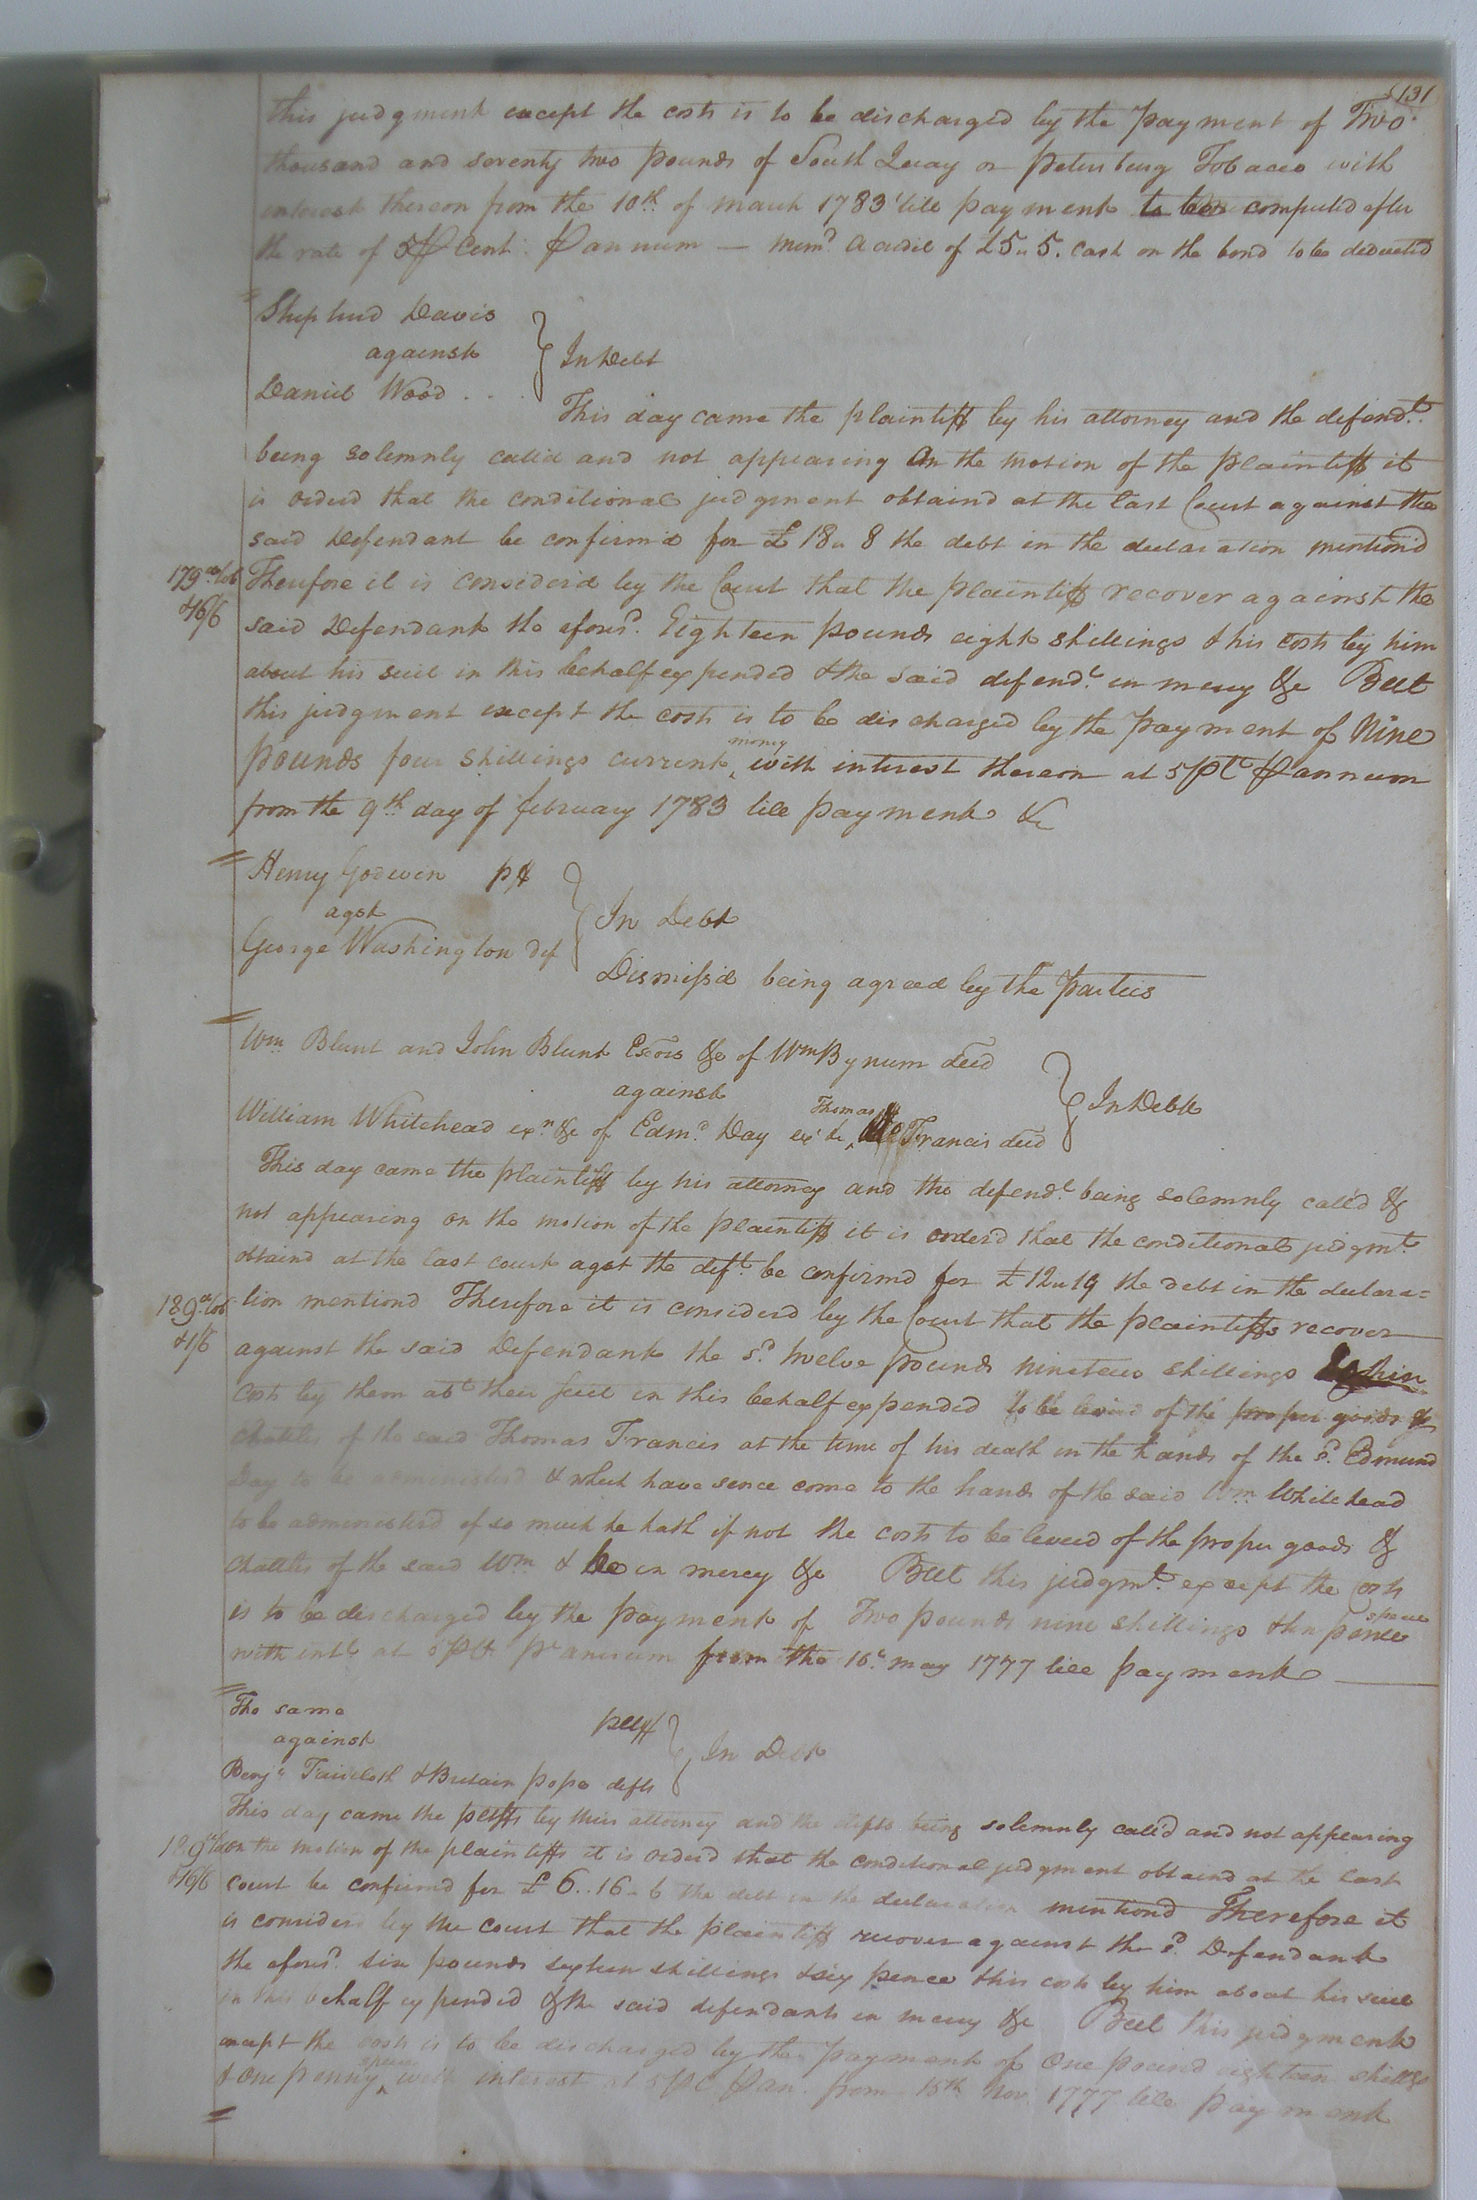 131
this judgment except the costs is to be discharged by the payment of Two
thousand and seventy two pounds of South Quay or petersburg Tobacco with
interest thereon from the 10th of march 1783 till payment to be computed after
the rate of 5 P Cent P annum — Memd. a credit of £5..5. cash on the bond to be deducted
Shepherd Davis
against
In Debt
Daniel Wood . . .
This day came the plaintiff by his attorney and the defendt.
being solemnly calld and not appearing On the motion of the plaintiff it
is orderd that the conditional judgment obtaind at the last Court against the
said Defendant be confirm'd for £ 18.. 8 the debt in the declaration mention'd
Therefore it is considerd by the Court that the plaintiff recover against the
said Defendant the aforesd. Eighteen pounds eight shillings & his costs by him
about his suit in this behalf expended & the said defendt. in mercy &c But
this judgment except the costs is to be discharged by the payment of Nine
money
pounds four shillings current with interest thereon at 5 P Ct P annum
from the 9th day of february 1783 till payment &c
Henry Godwin plt
agst
In Debt
George Washington def
Dismiss'd being agreed by the Parties
Wm Blunt and John Blunt Exors &c of Wm Bynum decd
against
In Debt
Thomas
William Whitehead exr. &c of Edmd. Day Francis decd
This day came the plaintiff by his attorney and the defendt. being solemnly call'd &
not appearing on the motion of the plaintiff it is orderd that the conditional judgmt.
obtaind at the last court agst the deft. be confirmd for £ 12..19 the debt in the declara=
tion mentiond Therefore it is considerd by the Court that the plaintiffs recover
against the said Defendant the sd. twelve pounds nineteen shillings
costs by them abt their suit in this behalf expended to be levied of the proper goods &
chattles of the said Thomas Francis at the time of his death in the hands of the sd. Edmund
Day to be administerd & which have sence come to the hands of the said Wm Whitehead
to be administerd if so much he hath if not the costs to be levied of the proper goods &
chattles of the said Wm & be in mercy &c But this judgmt. except the costs
is to be discharged by the payment of Two pounds nine shillings & ten pence
specie
with intt at 5 P Ct Pr annum from the 16t. may 1777 till payment
The same pltff
against
In Debt
Benja Faircloth & Britain pope defts
This day came the pltffs by their attorney and the defts being solemnly call'd and not appearing
on the motion of the plaintiffs it is orderd that the conditional judgment obtaind at the last
court be confirmd for £ 6..16..6 the debt in the declaration mentiond Therefore it
is considerd by the court that the plaintiff recover against the sd. Defendant
the aforesd. six pounds sixteen shillings & six pence & his costs by him about his suit
in this behalf expended & the said defendants in mercy &c But this judgment
except the costs is to be discharged by the payment of One pound eighteen shillgs
specie
& One penny with interest at 5 P C P an. from 15th Nov. 1777 till payment